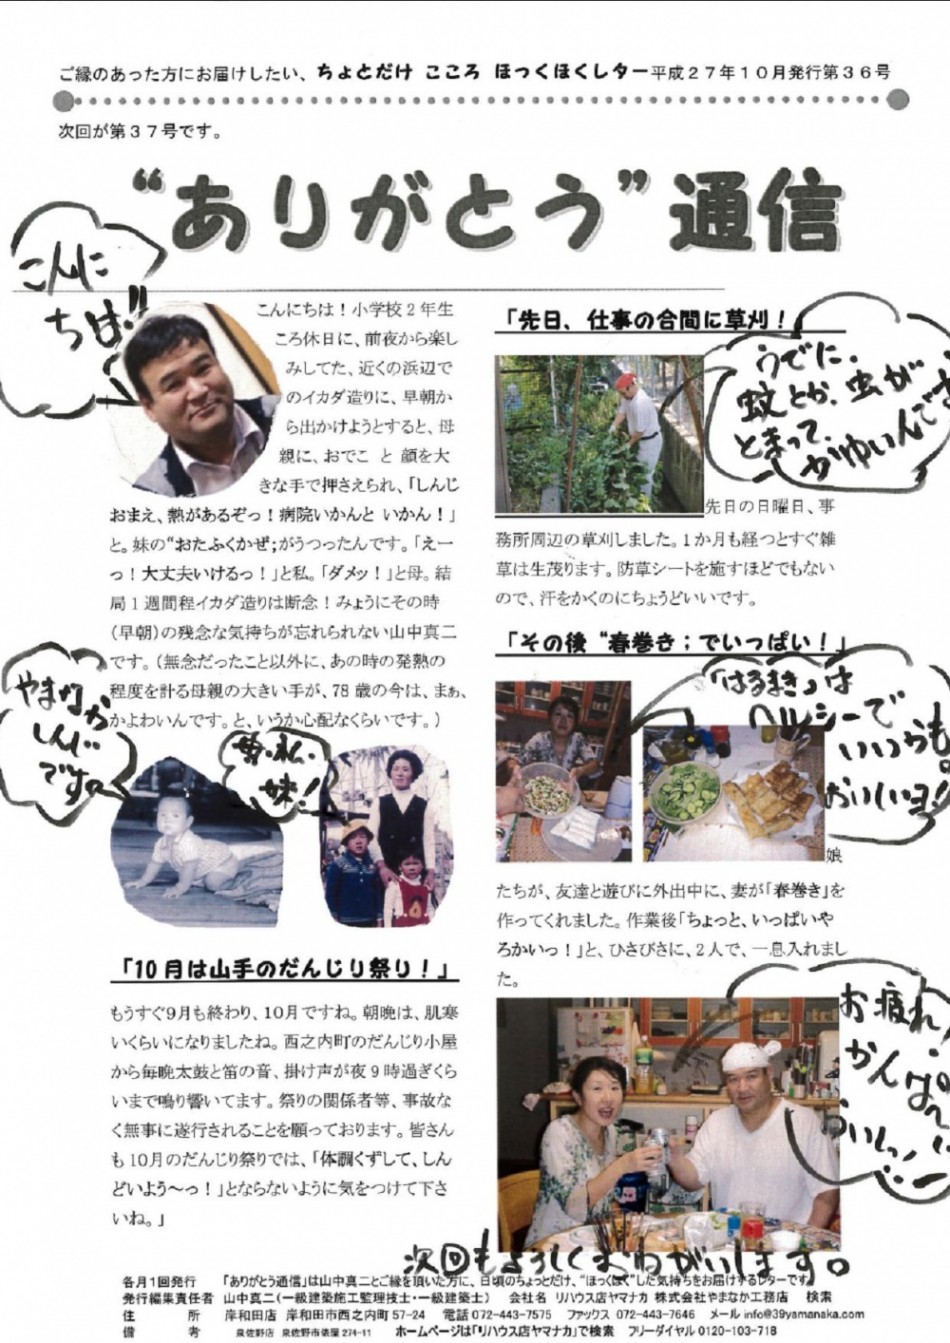 ご縁のあった方にお届けしたい、ちょとだけ こころ ほっくほくレター平成27年10月発行第36号
次回が第37号です。
“ありがとう”通信
こんに
ちは!!
こんにちは！小学校2年生
ころ休日に、前夜から楽し
みしてた、近くの浜辺で
のイカダ造りに、早朝か
ら出かけようとすると、母
親に、おでこ と 顔を大
きな手で押さえられ、「しんじ
おまえ、熱があるぞっ！病院いかんと いかん！」
と。妹の“おたふくかぜ;がうつったんです。「えー
っ！大丈夫いけるっ！」と私。「ダメッ！」と母。結
局1週間程イカダ造りは断念！みょうにその時
(早朝)の残念な気持ちが忘れられない山中真二
です。（無念だったこと以外に、あの時の発熱の
程度を計る母親の大きい手が、78歳の今は、まぁ、
かよわいんです。と、いうか心配なくらいです。）
やまなか
しんじ
です。
母・私・
妹!
「10月は山手のだんじり祭り！」
もうすぐ9月も終わり、10月ですね。朝晩は、肌寒
いくらいになりましたね。西之内町のだんじり小屋
から毎晩太鼓と笛の音、掛け声が夜9時過ぎくら
いまで鳴り響いてます。祭りの関係者等、事故な
く無事に遂行されることを願っております。皆さん
も10月のだんじり祭りでは、「体調くずして、しん
どいよう～っ！」とならないように気をつけて下さ
いね。」
「先日、仕事の合間に草刈！
うでに、
蚊とか、虫が
とまって、
かゆいんです
先日の日曜日、事
務所周辺の草刈しました。1か月も経つとすぐ雑
草は生茂ります。防草シートを施すほどでもない
ので、汗をかくのにちょうどいいです。
「その後 “春巻き；でいっぱい！」
「はるまき」は
ヘルシーで
いくつも
おいしいヨ!
娘
たちが、友達と遊びに外出中に、妻が「春巻き」を
作ってくれました。作業後「ちょっと、いっぱいや
ろかいっ！」と、ひさびさに、2人で、一息入れまし
た。
お疲れ!
かんぱ～
おいしっ!
次回もよろしくおねがいします。
各月1回発行 「ありがとう通信」は山中真二とご縁を頂いた方に、日頃のちょっとだけ、“ほっくほく”した気持ちをお届けするレターです。
発行編集責任者 山中真二（一級建築施工監理技士・一級建築士） 会社名 リハウス店ヤマナカ 株式会社やまなか工務店 検索
住 所 岸和田店 岸和田市西之内町57-24 電話072-443-7575 ファックス 072-443-7646 メール info@39yamanaka.com
備 考 泉佐野店 泉佐野市俵屋274-11 ホームページは「リハウス店ヤマナカ」で検索 フリーダイヤル 0120-103-718